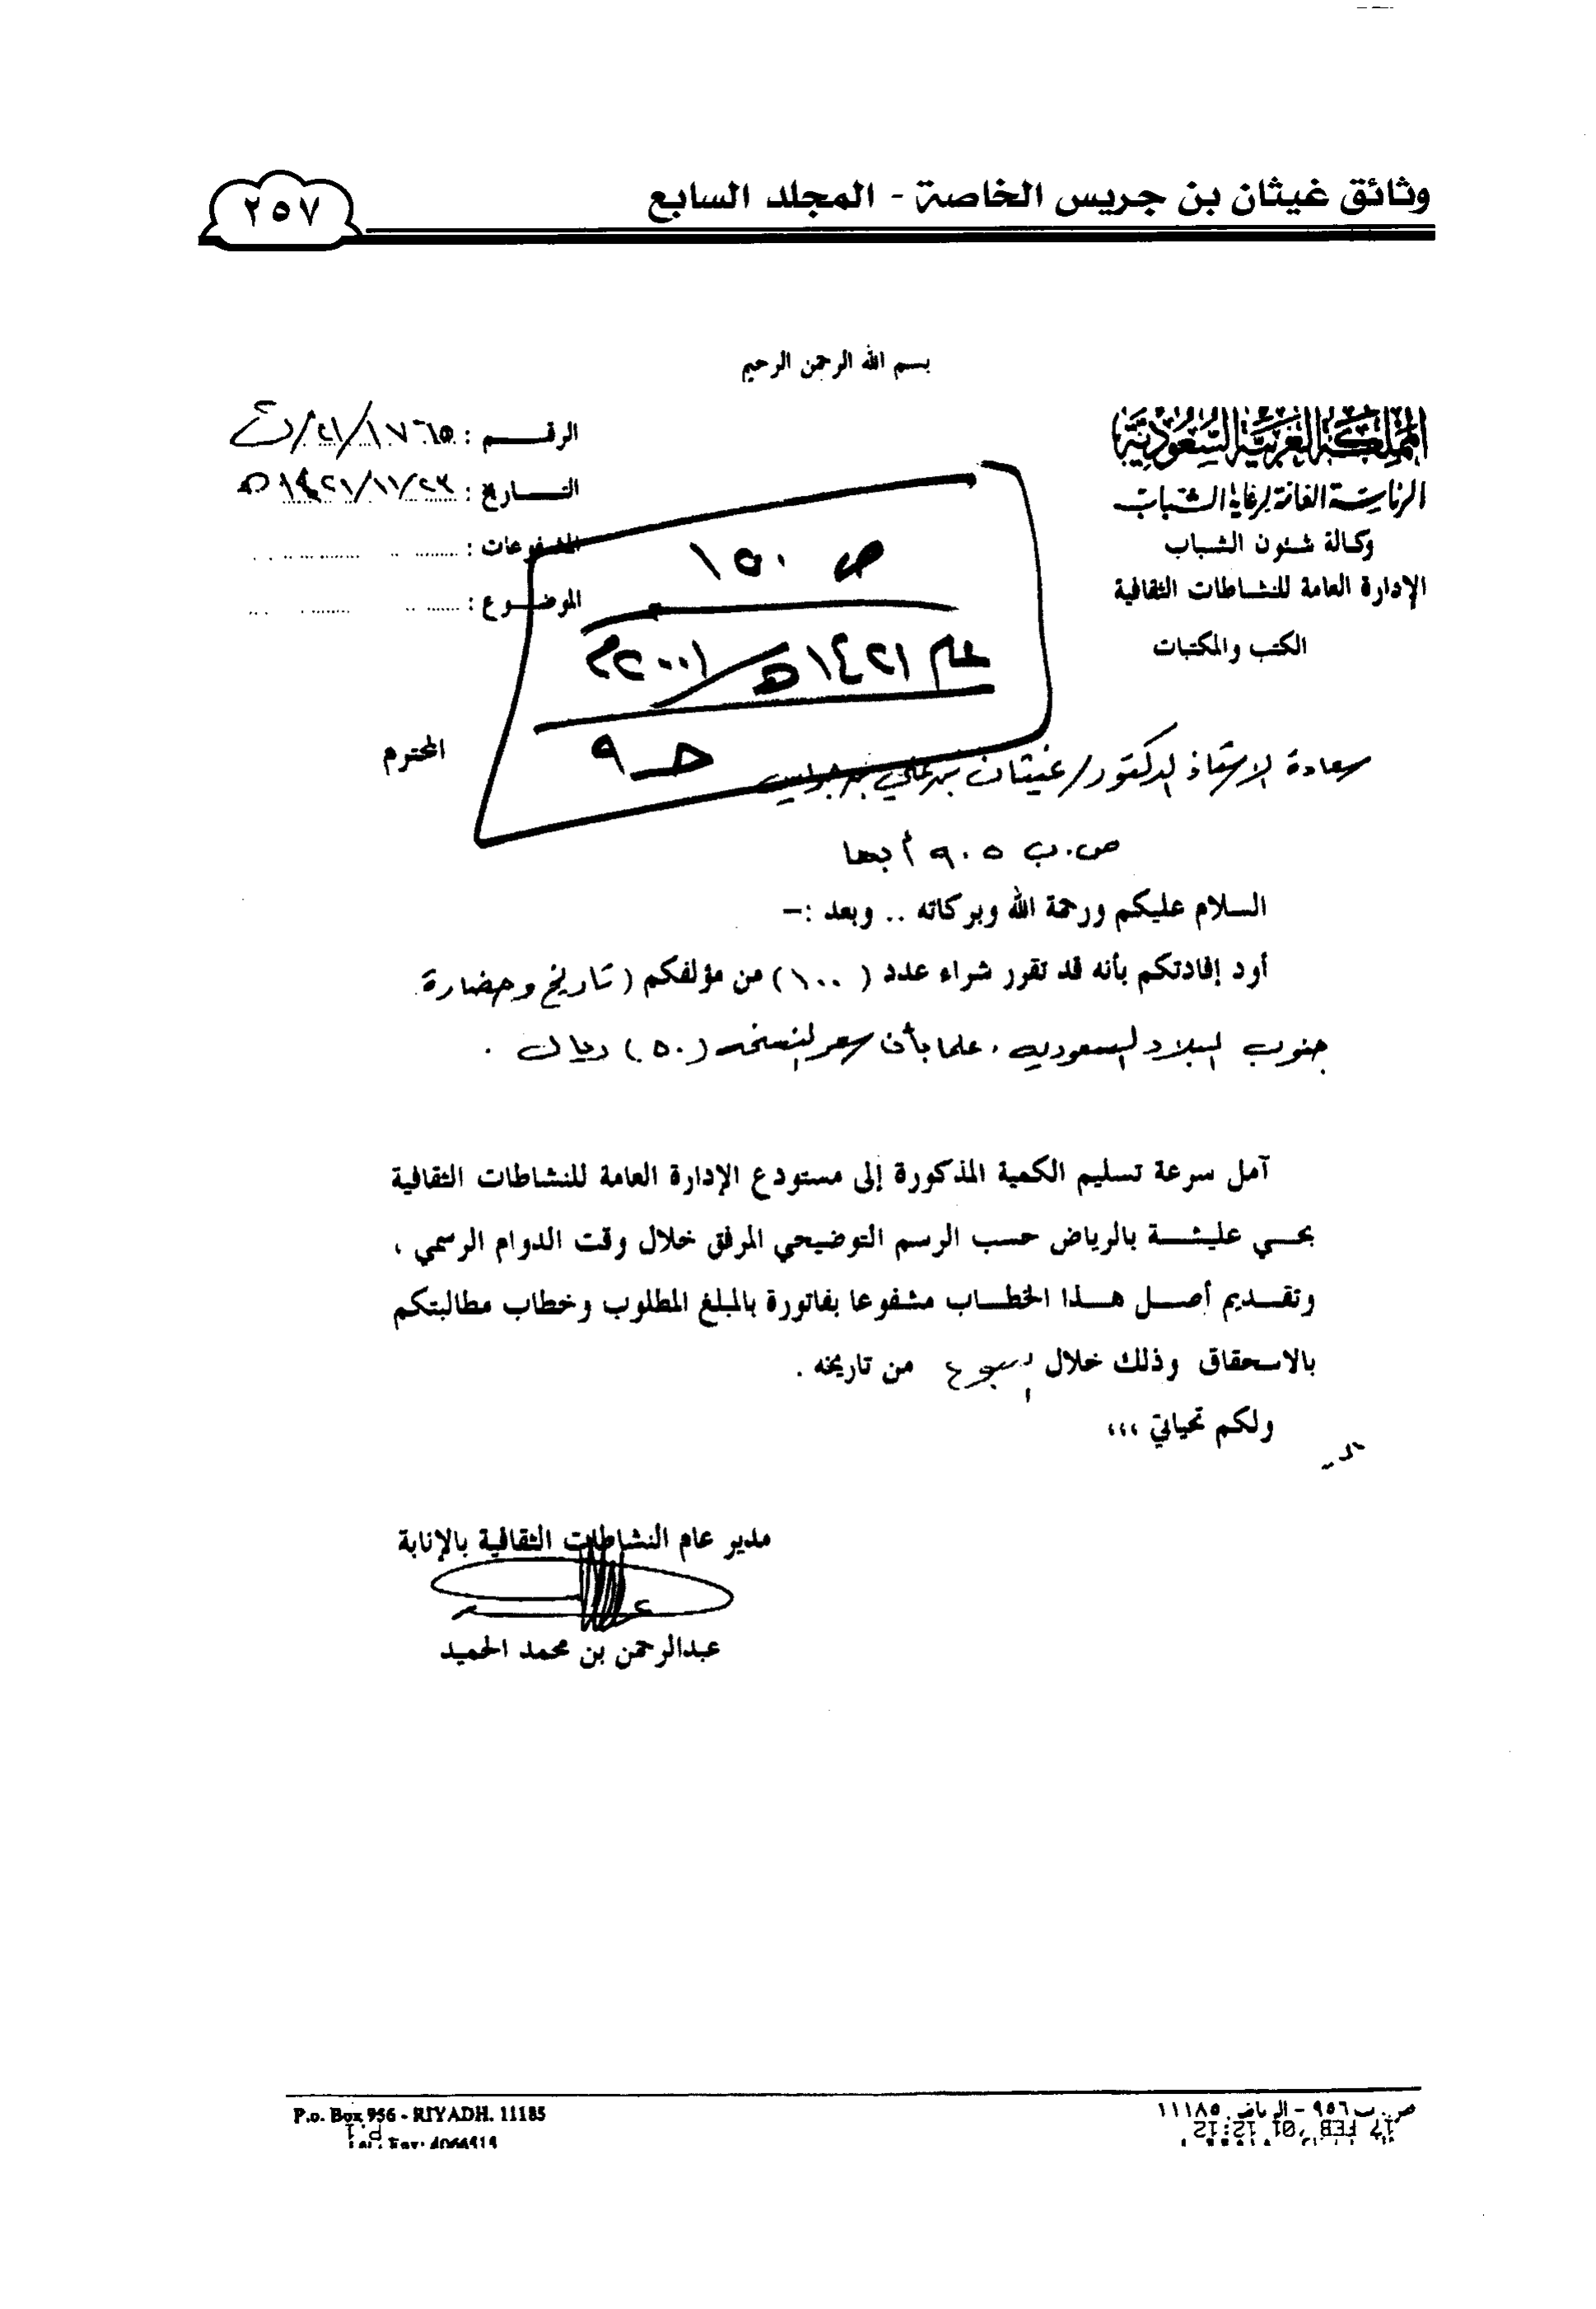 وثائق غيثان بن جريس الخاصة - المجلد السابع
٢٥٧
بسم الله الرحمن الرحيم
المملكة العربية السعودية
الرئاسة العامة لرعاية الشباب
وكالة شئون الشباب
الإدارة العامة للنشاطات الثقافية
الكتب والمكتبات
الرقـــم :
التـــاريخ : ١٤٢١/١١/٢٣ هـ
المشفوعات :
الموضـــوع :
ص ١٥٠
عام ١٤٢١هـ/٢٠٠١م
حـ ٩
سعادة الاستاذ الدكتور/ غيثان بن علي بن جريس المحترم
ص.ب ٩٠٥ أبها
السلام عليكم ورحمة الله وبركاته .. وبعد :–
أود إفادتكم بأنه قد تقرر شراء عدد ( ١٠٠ ) من مؤلفكم ( تاريخ وحضارة
جنوب البلاد السعودية ، علما بأن سعر النسخة ( ٥٠ ) ريال .
آمل سرعة تسليم الكمية المذكورة إلى مستودع الإدارة العامة للنشاطات الثقافية
بحـــي عليشـــة بالرياض حسب الرسم التوضيحي المرفق خلال وقت الدوام الرسمي ،
وتقـــديم أصـــل هـــذا الخطـــاب مشفوعا بفاتورة بالمبلغ المطلوب وخطاب مطالبتكم
بالاسحقاق وذلك خلال اسبوع من تاريخه .
ولكم تحياتي ،،،
مدير عام النشاطات الثقافية بالإنابة
عبدالرحمن بن محمد الحميد
ص. ب ٩٥٦ – الرياض ١١١٨٥
P.o. Box 956 - RIYADH. 11185
17 FEB '01 12:12
P.1